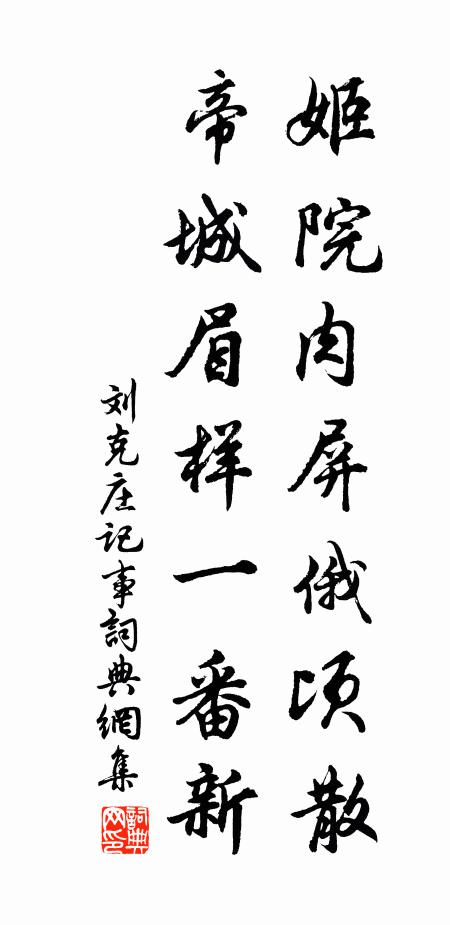 姬院肉屏俄顷散
帝城眉样一番新
刘克庄记事詞典網集
詞典网印